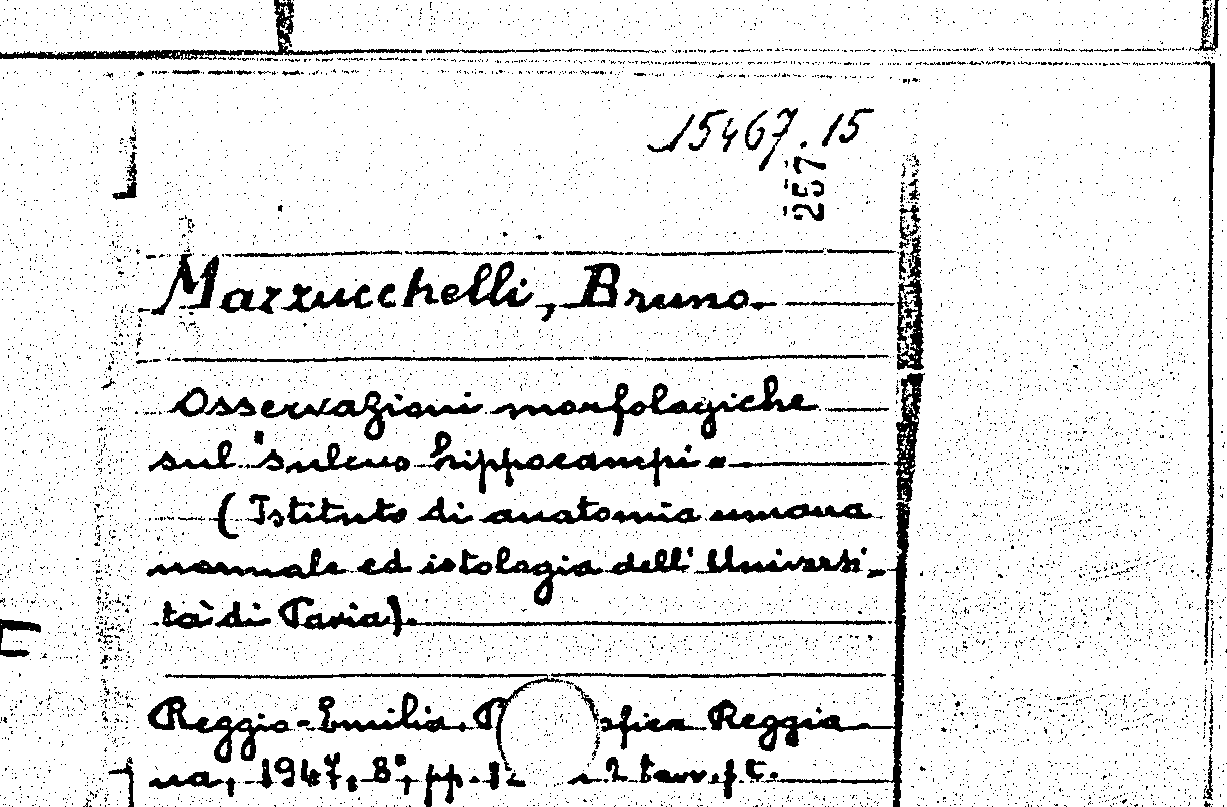 15467.15
257
Mazzucchelli, Bruno.
Osservazioni morfologiche
sul "sulcus hippocampi".
(Istituto di anatomia umana
normale ed istologia dell'Universi-
tà di Pavia).
Reggio-Emilia, Reggia
na, 1947, 8°, pp. 2 tavv. f. t.